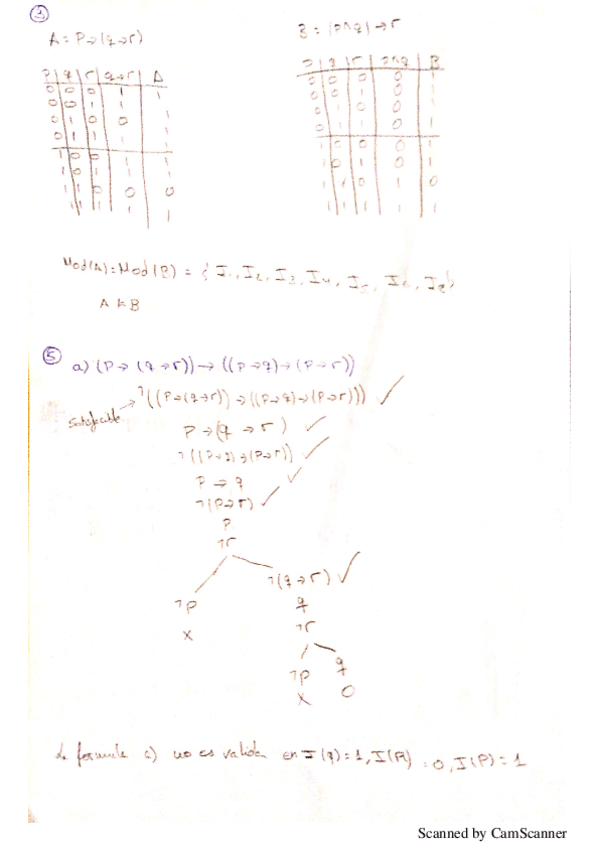 3
A = P→(q→r)
B = (P∧q)→r
P q r q→r A
0 0 0 1 1
0 0 1 1 1
0 1 0 0 1
0 1 1 1 1
1 0 0 1 1
1 0 1 1 1
1 1 0 0 0
1 1 1 1 1
P q r P∧q B
0 0 0 0 1
0 0 1 0 1
0 1 0 0 1
0 1 1 0 1
1 0 0 0 1
1 0 1 0 1
1 1 0 1 0
1 1 1 1 1
Mod(A) = Mod(B) = { I₁, I₂, I₃, I₄, I₅, I₆, I₈}
A ⊨ B
5
a) (P→(q→r))→((P→q)→(P→r))
Satisfacible → ¬((P→(q→r))→((P→q)→(P→r))) ✓
P→(q→r) ✓
¬((P→q)→(P→r)) ✓
P→q ✓
¬(P→r) ✓
P
¬r
¬(q→r) ✓
¬p q
x ¬r
¬p q
x O
formula no es valida en I(q)=1, I(R)=0, I(P)=1
Scanned by CamScanner